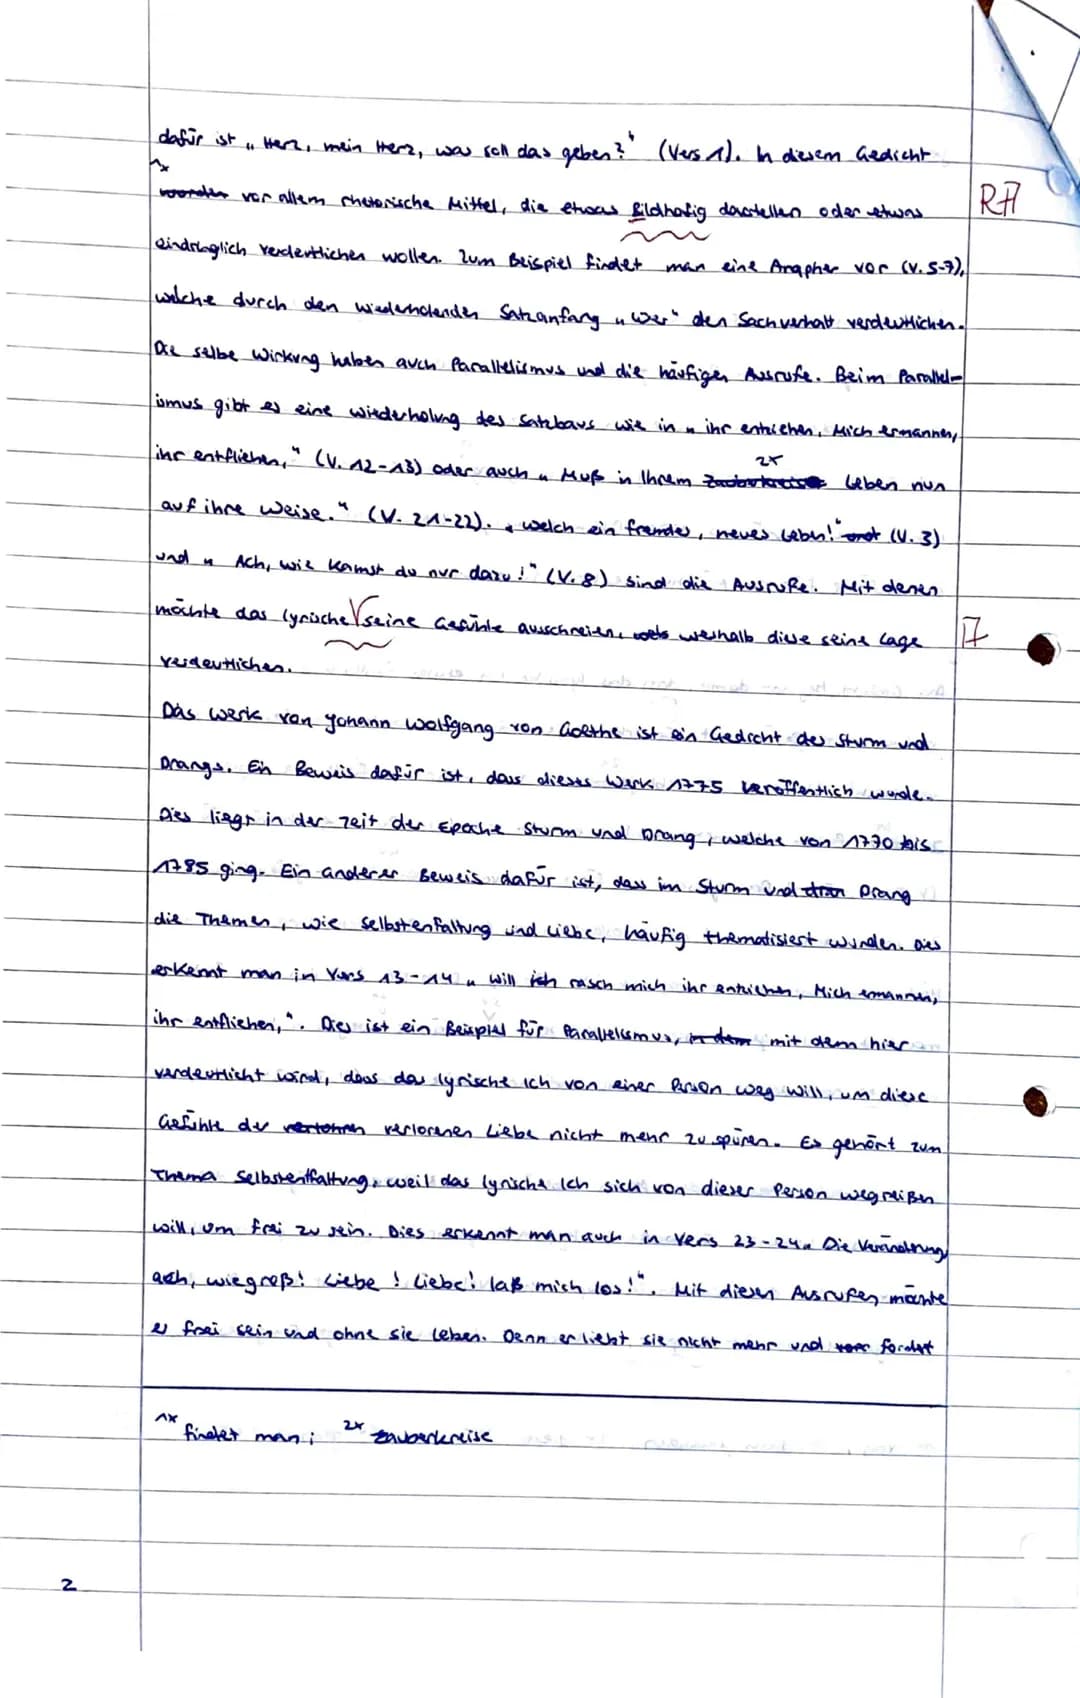 dafür ist „Herz, mein Herz, was soll das geben?“ (Vers 1). In diesem Gedicht
1x
worden vor allem rhetorische Mittel, die etwas Bildhafig darstellen oder etwas
RF
eindringlich verdeutlichen wollen. Zum Beispiel findet man eine Anapher vor (V. 5-7),
welche durch den wiederholenden Satzanfang „wer“ den Sachverhalt verdeutlichen.
Die selbe Wirkung haben auch Parallelismus und die häufigen Ausrufe. Beim Parallel-
ismus gibt es eine wiederholung des Satzbaus wie in „ihr entziehen, Mich ermannen,
ihr entfliehen,“ (V. 12-13) oder auch „Muß in Ihrem Zauberkreise 2x leben nun
auf ihre Weise.“ (V. 21-22). „welch ein fremdes, neues Leben!“ (V. 3)
und „Ach, wie kamst du nur dazu!“ (V. 8) sind die Ausrufe. Mit denen
möchte das lyrische √ seine Gefühle ausschreien, weshalb diese seine Lage
verdeutlichen.
Das Werk von Johann Wolfgang von Goethe ist ein Gedicht des Sturm und
Drangs. Ein Beweis dafür ist, dass dieses Werk 1775 veröffentlich wurde.
Dies liegt in der Zeit der Epoche Sturm und Drang, welche von 1770 bis
1785 ging. Ein anderer Beweis dafür ist, dass im Sturm und Drang
die Themen, wie Selbstenfaltung und Liebe, häufig thematisiert wurden. Dies
erkennt man in Vers 13-14 „will ich rasch mich ihr entziehen, Mich ermannen,
ihr entfliehen,“. Dies ist ein Beispiel für Parallelismus, in dem mit dem hier
verdeutlicht wird, dass das lyrische Ich von einer Person weg will, um diese
Gefühle der verlorenen Liebe nicht mehr zu spüren. Es gehört zum
Thema Selbstentfaltung, weil das lyrische Ich sich von dieser Person wegreißen
will, um frei zu sein. Dies erkennt man auch in Vers 23-24 „Die Verändrung,
ach, wie groß! Liebe! Liebe! laß mich los!“. Mit diesen Ausrufen möchte
er frei sein und ohne sie leben. Denn er liebt sie nicht mehr und fordert
1x findet man; 2x Zauberkreise
2